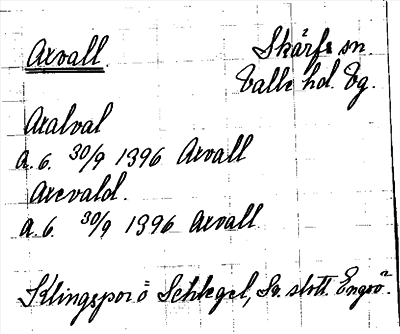 Arvall
Skärfs sn.
Valle hd. Vg.
Aralval
a. 6. 30/9 1396 Arvall
Arevald.
a. 6. 30/9 1396 Arvall
Klingspor o Schlegel, Sv. slott. Engsö.